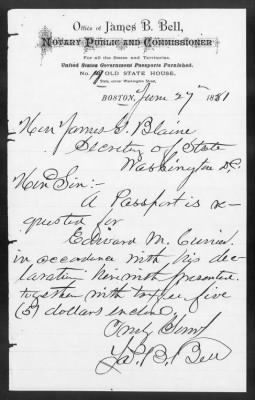 Office of
JAMES B. BELL,
NOTARY PUBLIC AND COMMISSIONER
For all the States and Territories.
United States Government Passports Furnished.
No. 19 OLD STATE HOUSE,
BOSTON, June 27 1881
Hon James G. Blaine
Secretary of State
Washington D.C.
Hon Sir:-
A Passport is re-
quested for
Edward M.
in accordance with his dec-
laration herewith presented
together with five
(5) dollars enclosed
Truly Yours
Jas. B. Bell